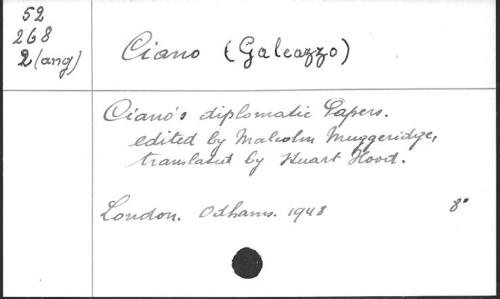 52
268
2 (ang)
Ciano (Galeazzo)
Ciano's diplomatic Papers.
edited by Malcolm Muggeridge,
translated by Stuart Hood.
London. Odhams. 1948 8°